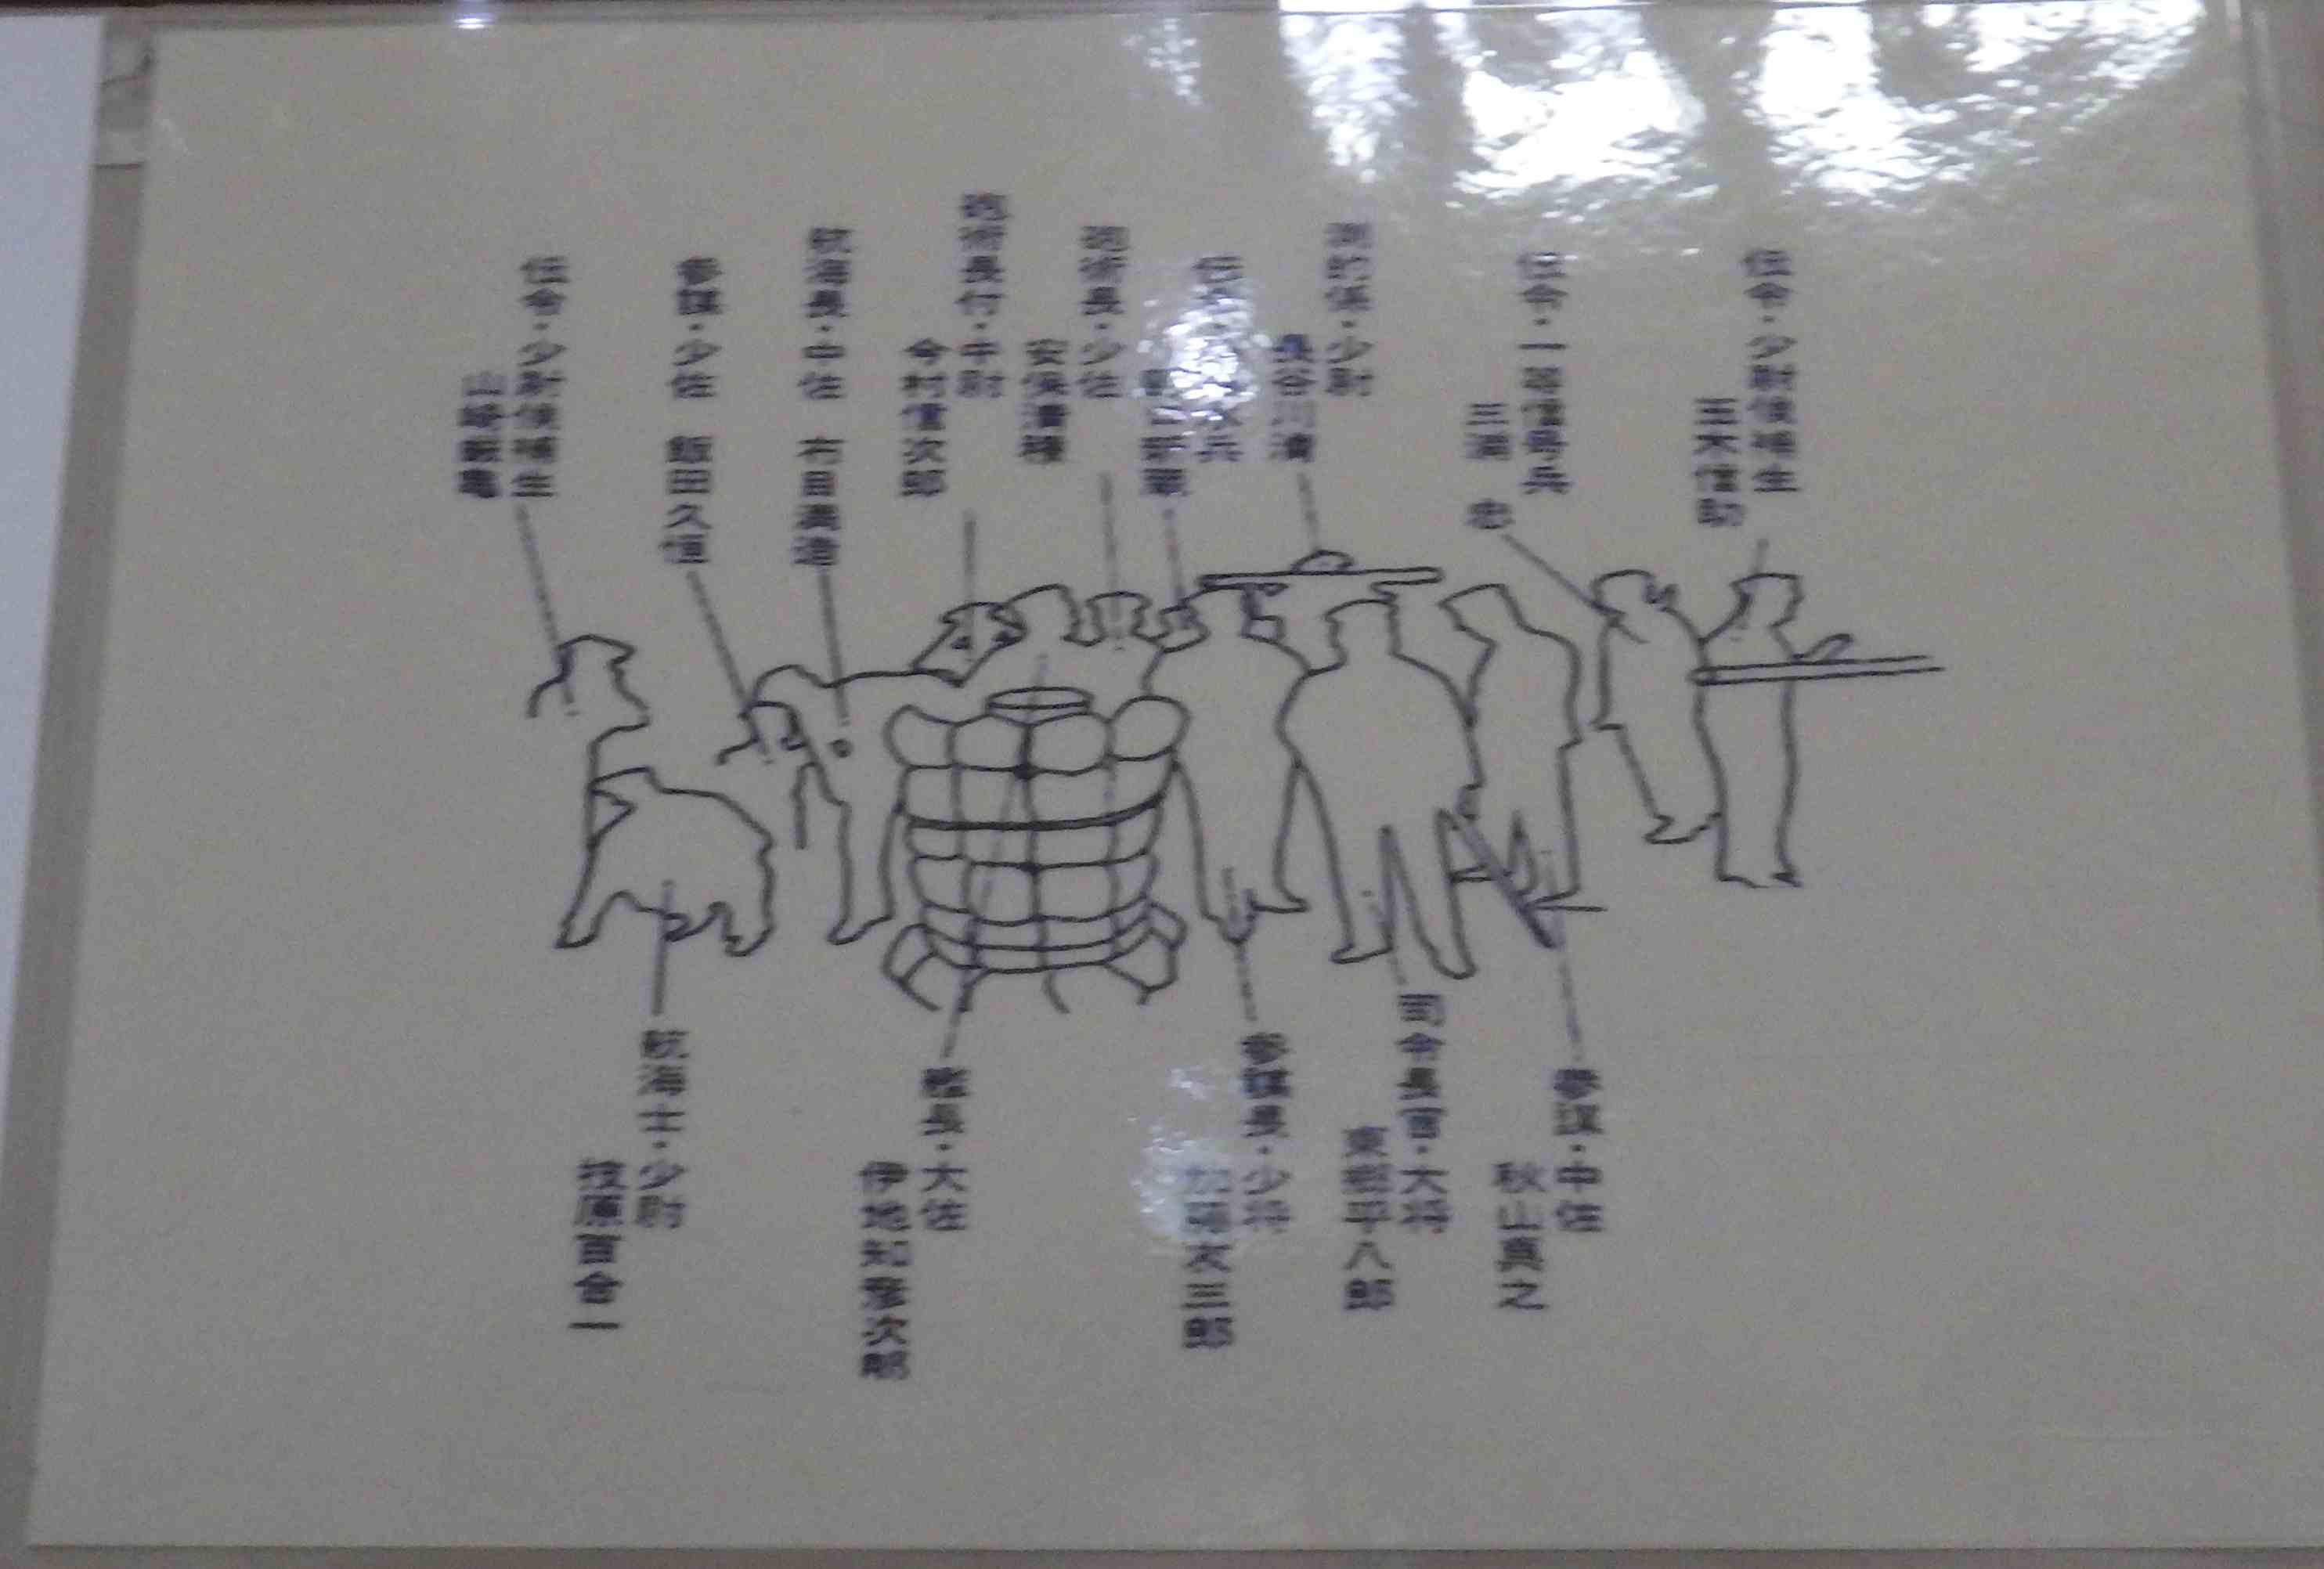 伝令・少尉候補生
玉木信助
伝令・一等信号兵
三浦 忠
測的係・少尉
長谷川清
砲術長・少佐
安保清種
砲術長付・中尉
今村信次郎
航海長・中佐 布目満造
参謀・少佐 飯田久恒
伝令・少尉候補生
参謀・中佐
秋山真之
司令長官・大将
東郷平八郎
参謀長・少将
加藤友三郎
艦長・大佐
伊地知彦次郎
航海士・少尉
枝原百合一